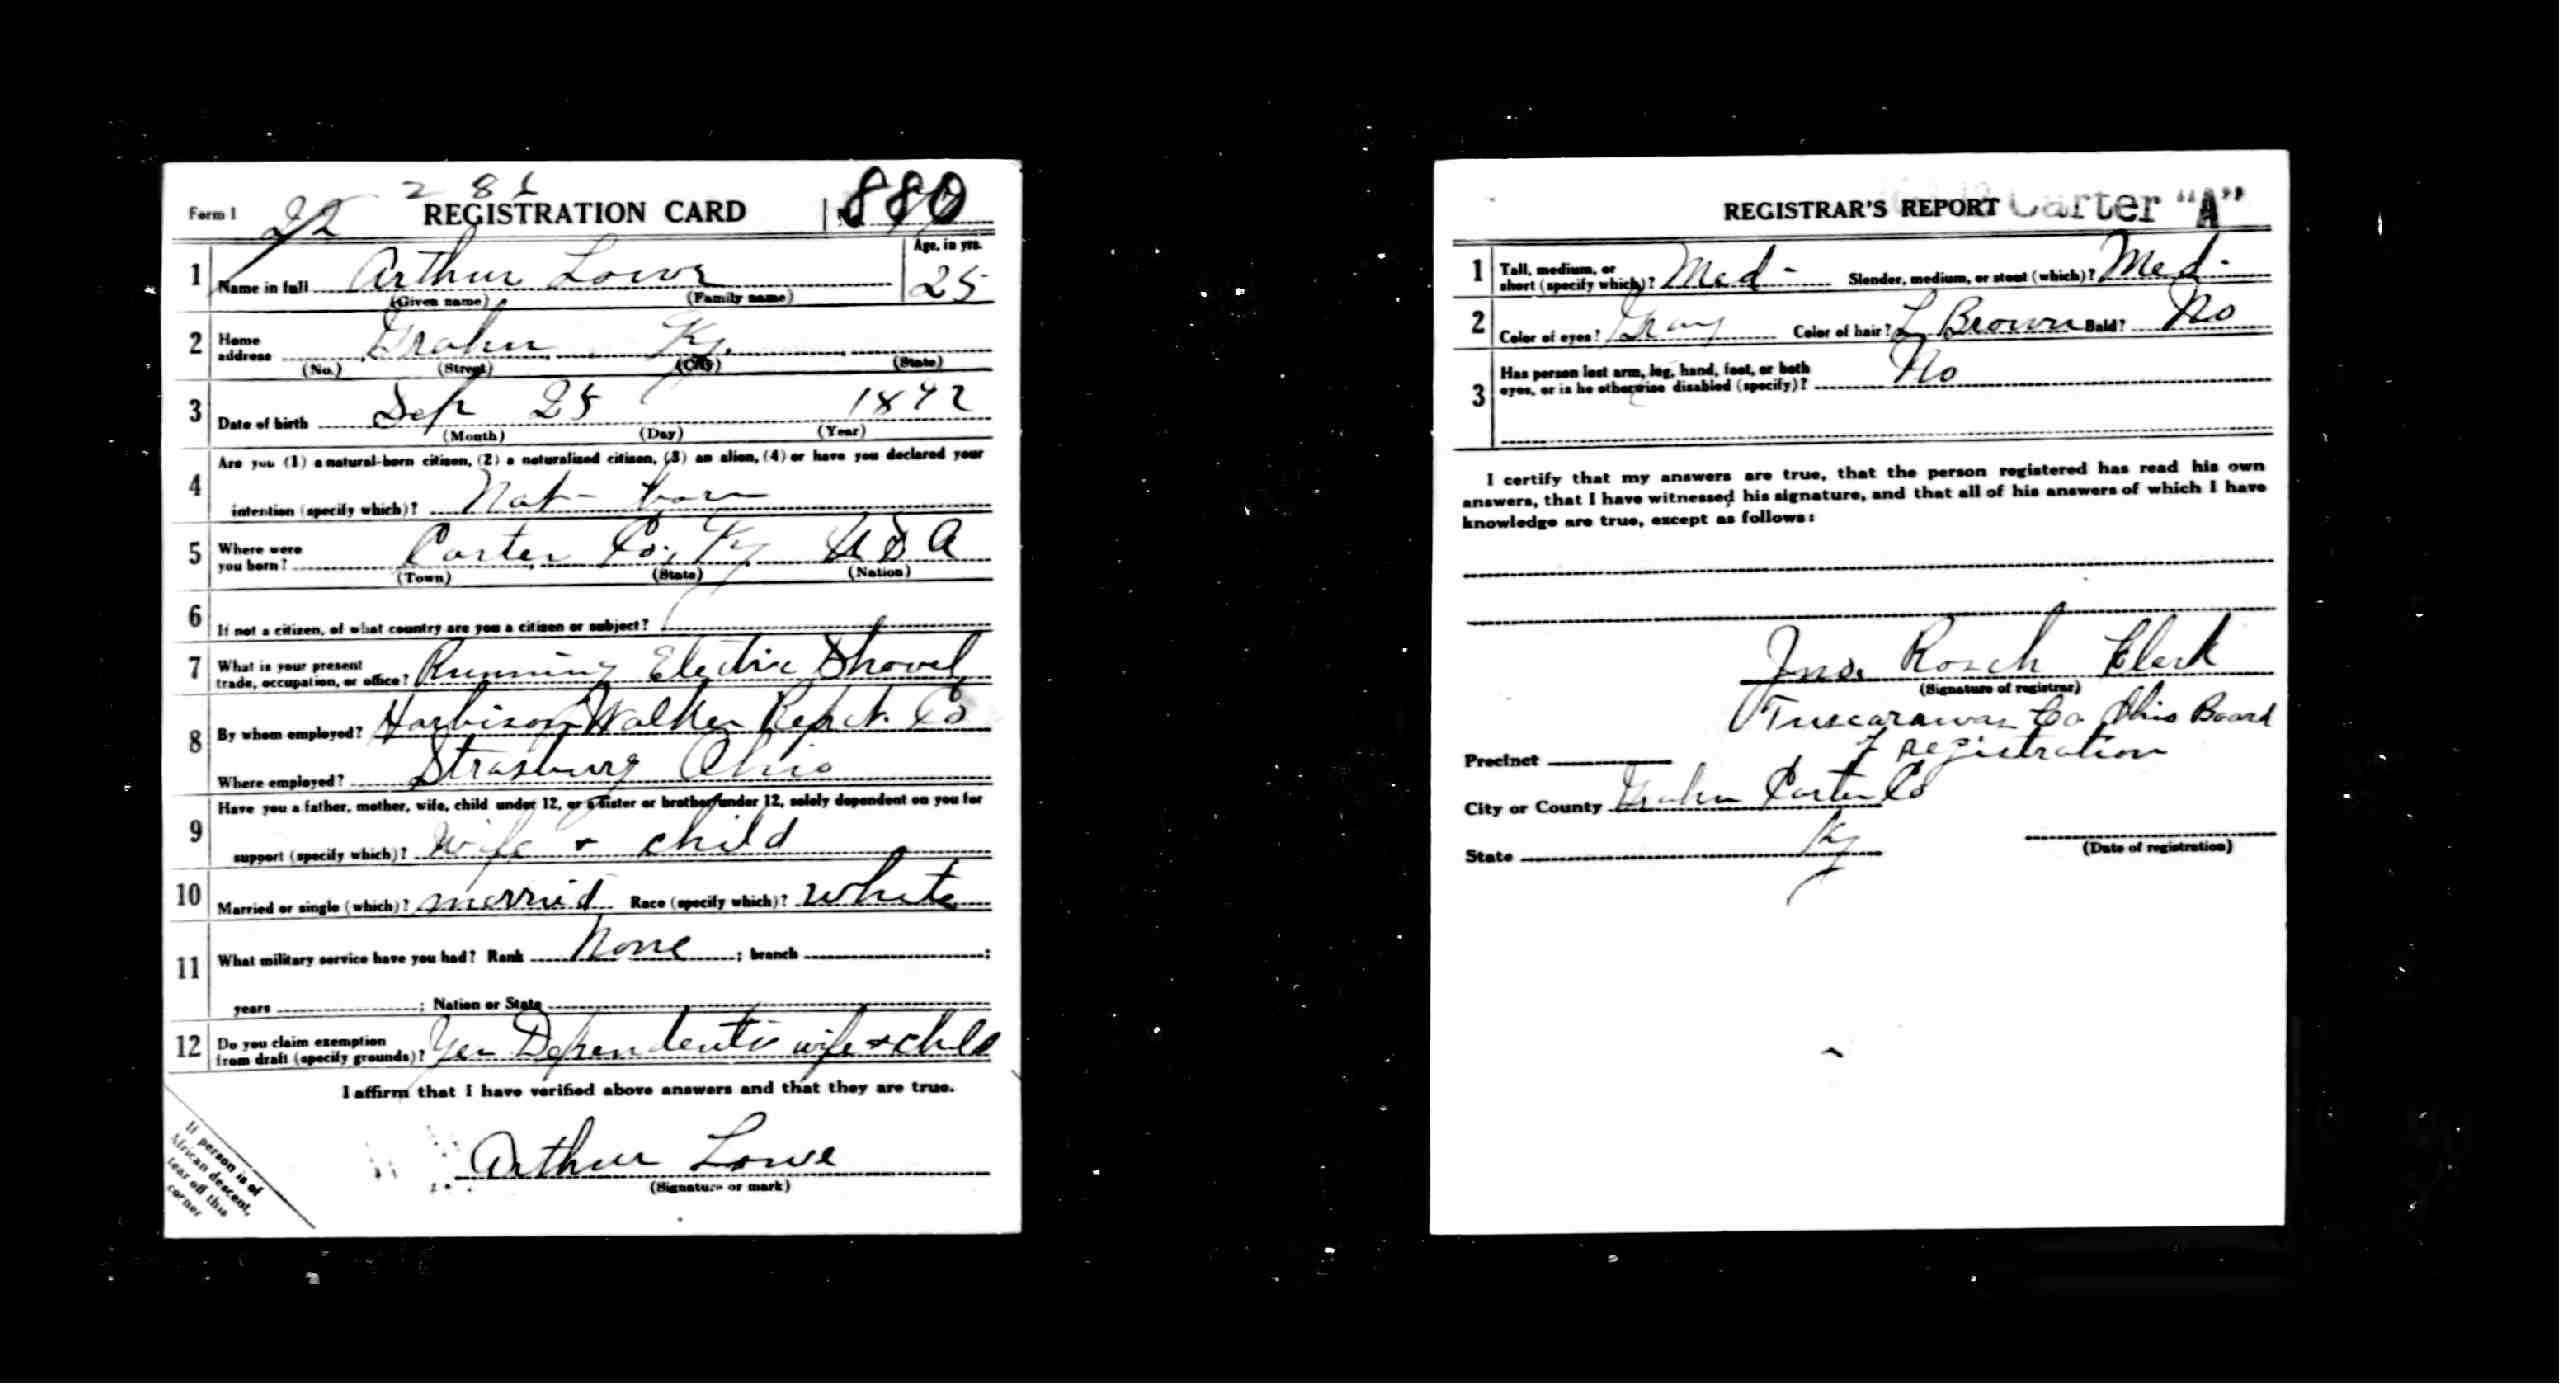 2 8 6
Form 1 22 REGISTRATION CARD 880
1 Name in full Arthur Lowe Age, in yrs. 25
(Given name) (Family name)
2 Home address Grahn Ky.
(No.) (Street) (City) (State)
3 Date of birth Sep 25 1892
(Month) (Day) (Year)
Are you (1) a natural-born citizen, (2) a naturalized citizen, (3) an alien, (4) or have you declared your
4 intention (specify which)? Nat - born
5 Where were you born? Carter Co., Ky U S A
(Town) (State) (Nation)
6 If not a citizen, of what country are you a citizen or subject?
7 What is your present trade, occupation, or office? Running Electric Shovel
8 By whom employed? Harbison Walker Refract. Co
Where employed? Strasburg Ohio
Have you a father, mother, wife, child under 12, or a sister or brother under 12, solely dependent on you for
9 support (specify which)? Wife + child
10 Married or single (which)? married Race (specify which)? white
11 What military service have you had? Rank None ; branch ;
years ; Nation or State
12 Do you claim exemption from draft (specify grounds)? Yes Dependents wife + child
I affirm that I have verified above answers and that they are true.
Arthur Lowe
(Signature or mark)
If person is of
African descent,
tear off this
corner
REGISTRAR'S REPORT Carter "A"
1 Tall, medium, or short (specify which)? Med - Slender, medium, or stout (which)? Med -
2 Color of eyes? Gray Color of hair? L Brown Bald? No
3 Has person lost arm, leg, hand, foot, or both
eyes, or is he otherwise disabled (specify)? No
I certify that my answers are true, that the person registered has read his own
answers, that I have witnessed his signature, and that all of his answers of which I have
knowledge are true, except as follows:
Jno. Rosch Clerk
(Signature of registrar)
Tuscarawas Co Ohio Board
Precinct of registration
City or County Grahn Carter Co
State Ky
(Date of registration)